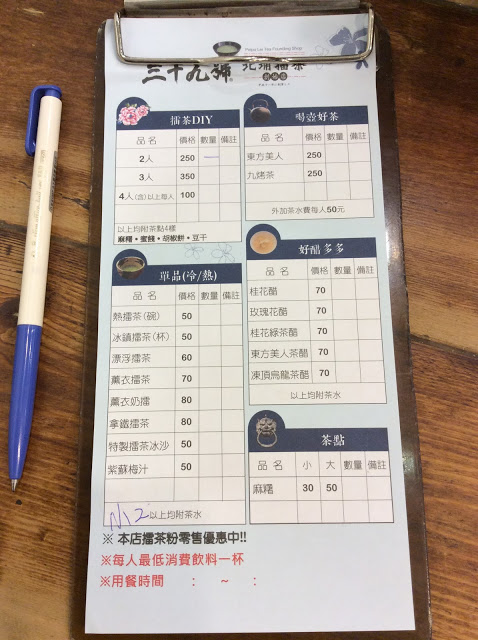 Peipu Lei Tea Founding Shop
三十九號 北埔擂茶
擂茶DIY
品名 價格 數量 備註
2人 250
3人 350
4人(含)以上每人 100
以上均附茶點4樣
麻糬•蜜餞•胡椒餅•豆干
單品(冷/熱)
品名 價格 數量 備註
熱擂茶(碗) 50
冰鎮擂茶(杯) 50
漂浮擂茶 60
薰衣擂茶 70
薰衣奶擂 80
拿鐵擂茶 80
特製擂茶冰沙 50
紫蘇梅汁 50
N12 以上均附茶水
喝壺好茶
品名 價格 數量 備註
東方美人 250
九烤茶 250
外加茶水費每人50元
好醋多多
品名 價格 數量 備註
桂花醋 70
玫瑰花醋 70
桂花綠茶醋 70
東方美人茶醋 70
凍頂烏龍茶醋 70
以上均附茶水
茶點
品名 小 大 數量 備註
麻糬 30 50
※ 本店擂茶粉零售優惠中!!
※每人最低消費飲料一杯
※用餐時間 : ~ :